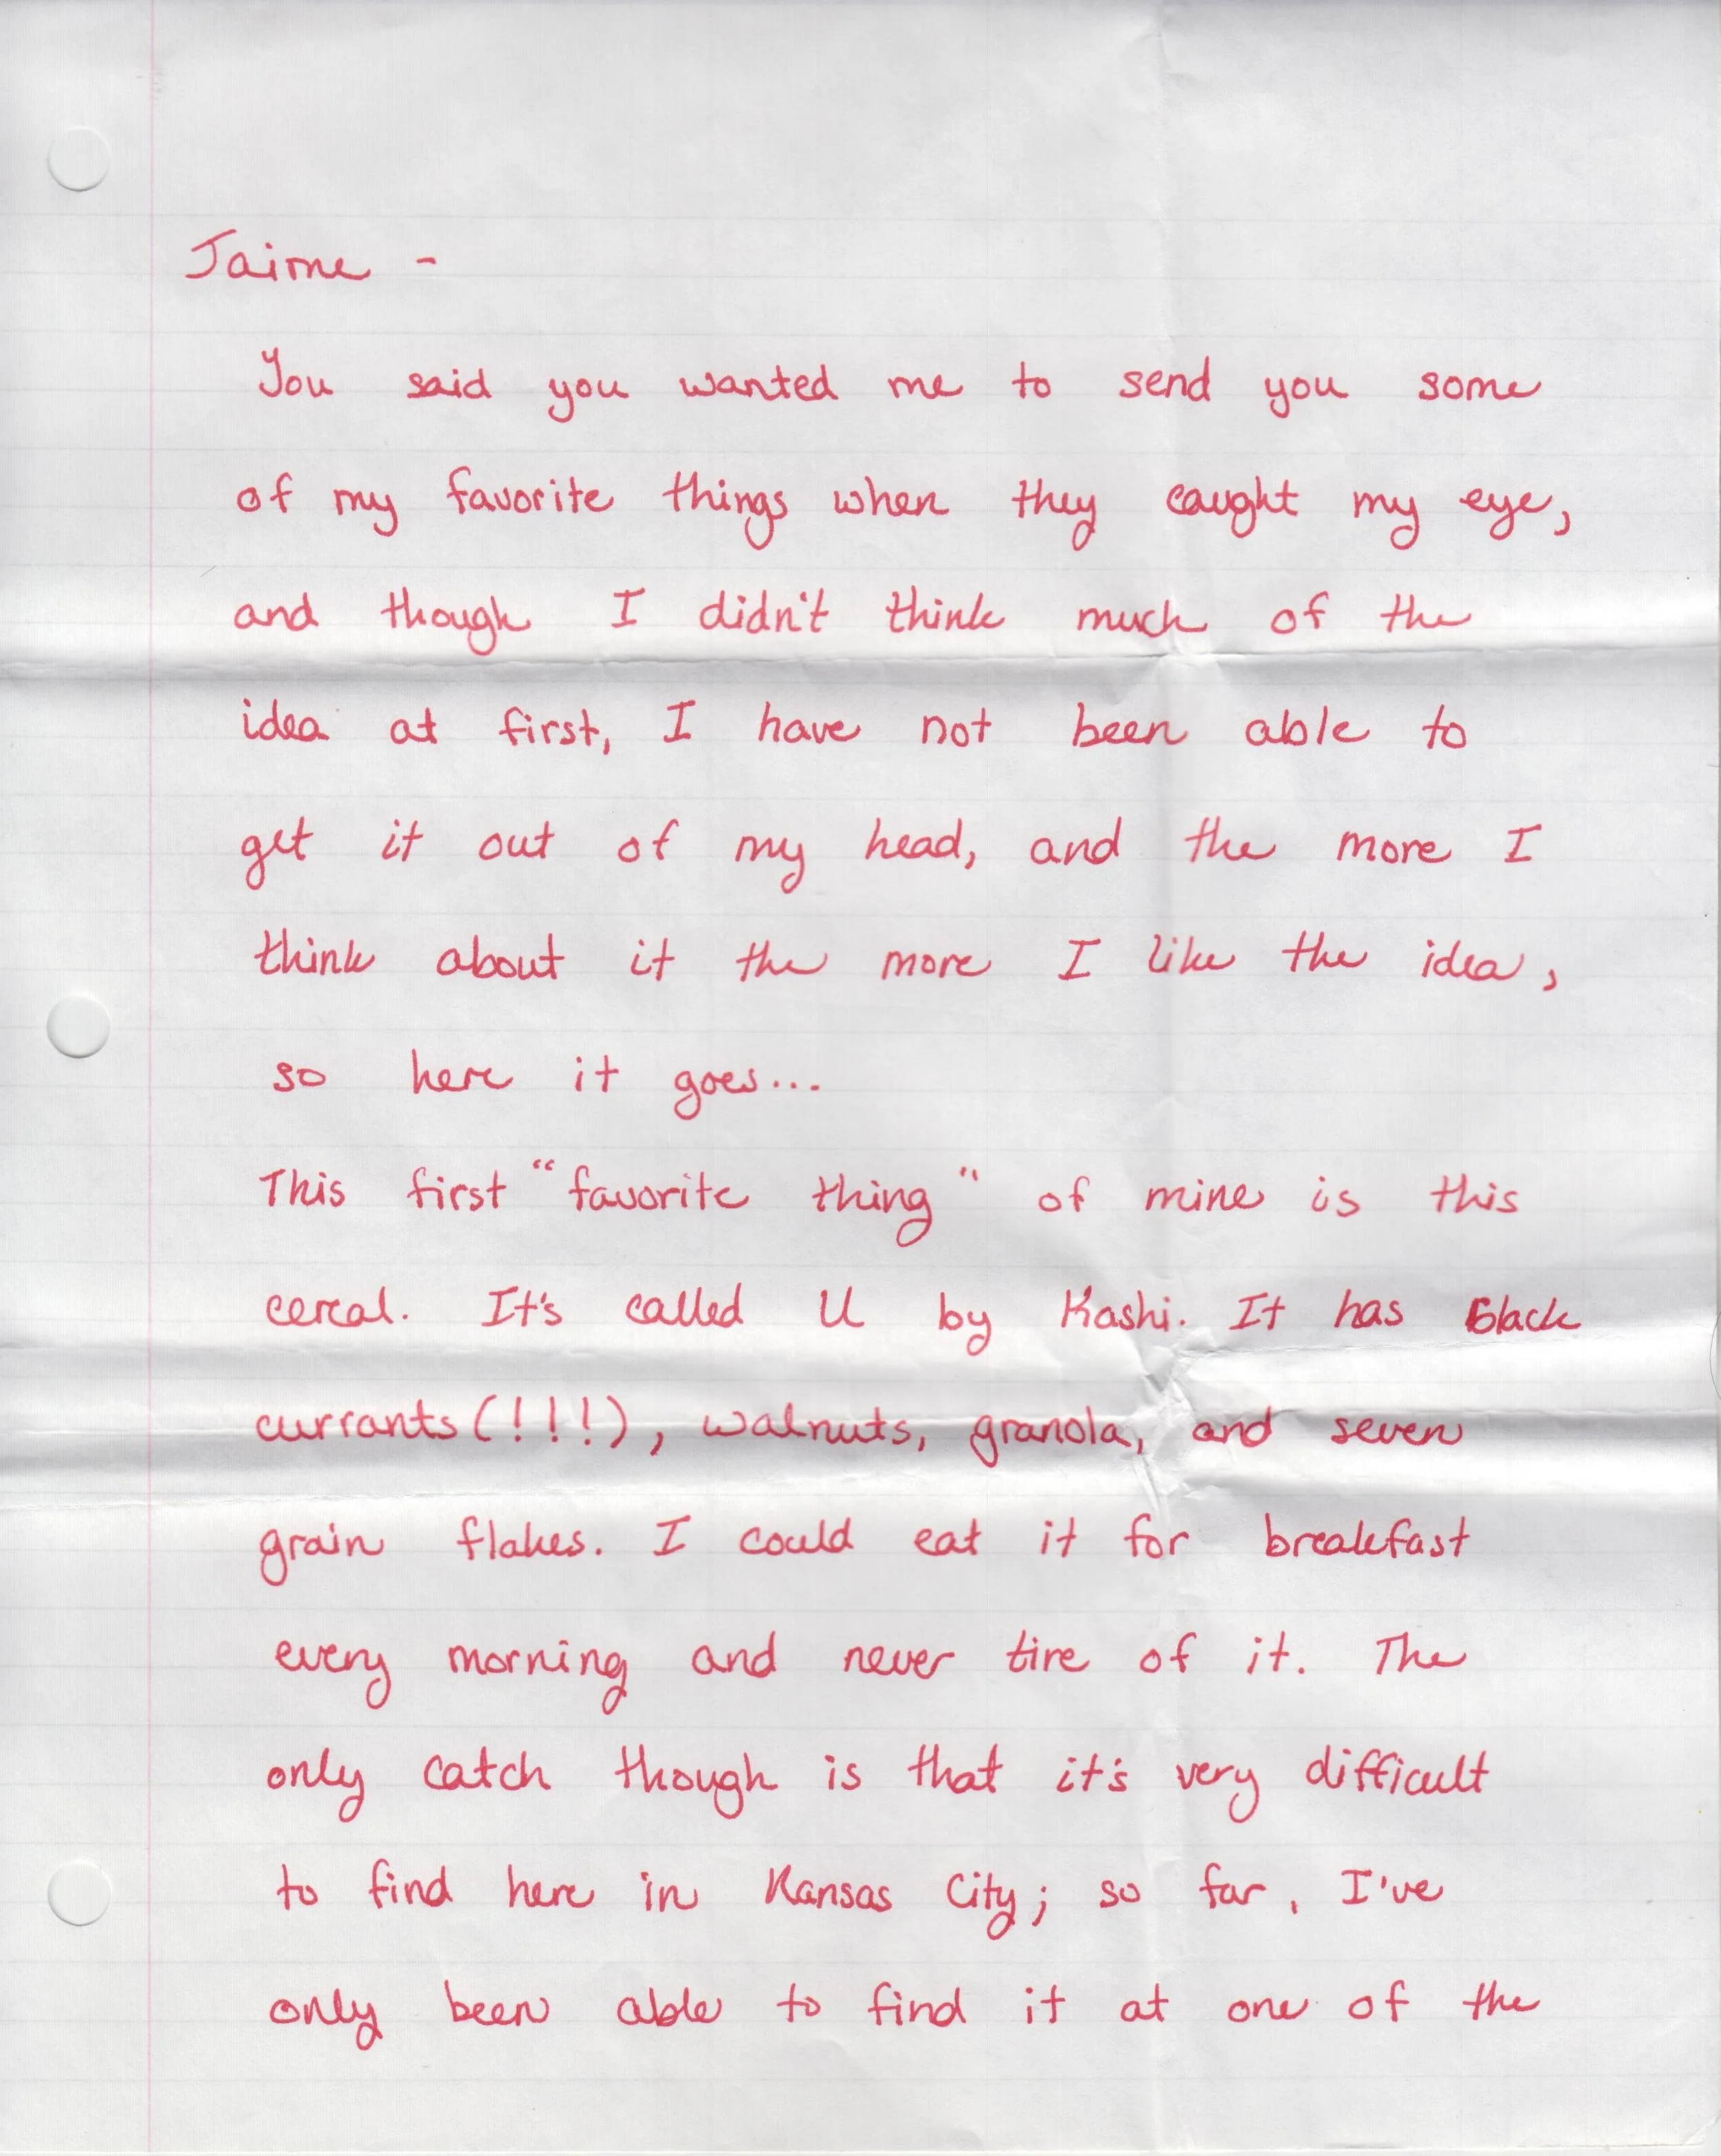 Jaime -
You said you wanted me to send you some
of my favorite things when they caught my eye,
and though I didn't think much of the
idea at first, I have not been able to
get it out of my head, and the more I
think about it the more I like the idea,
so here it goes...
This first "favorite thing" of mine is this
cereal. It's called U by Kashi. It has black
currants(!!!), walnuts, granola, and seven
grain flakes. I could eat it for breakfast
every morning and never tire of it. The
only catch though is that it's very difficult
to find here in Kansas City; so far, I've
only been able to find it at one of the